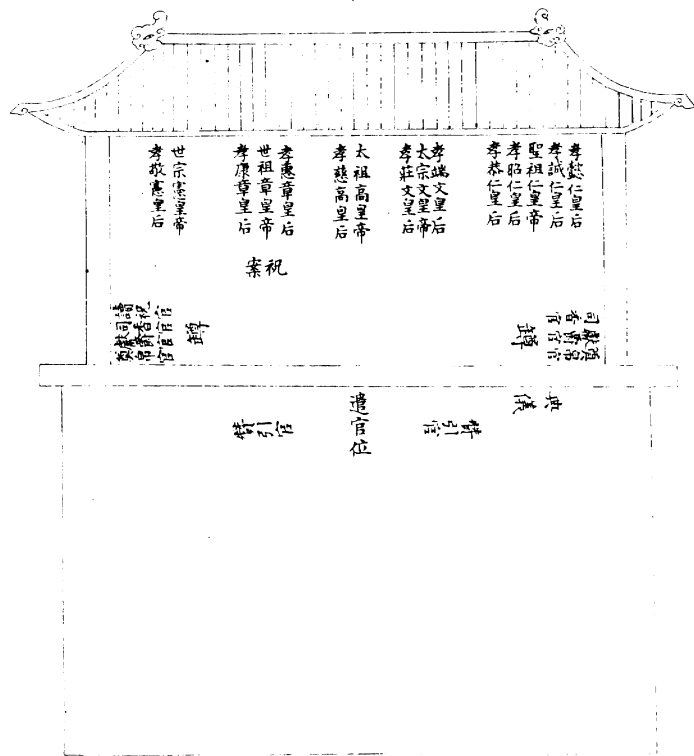 孝懿仁皇后
孝誠仁皇后
聖祖仁皇帝
孝昭仁皇后
孝恭仁皇后
孝端文皇后
太宗文皇帝
孝莊文皇后
太祖高皇帝
孝慈高皇后
孝惠章皇后
世祖章皇帝
孝康章皇后
世宗憲皇帝
孝敬憲皇后
祝案
司香官
獻帛官
尊
尊
讀祝官
司香官
獻帛官
典儀
遣官位
贊引官
贊引官